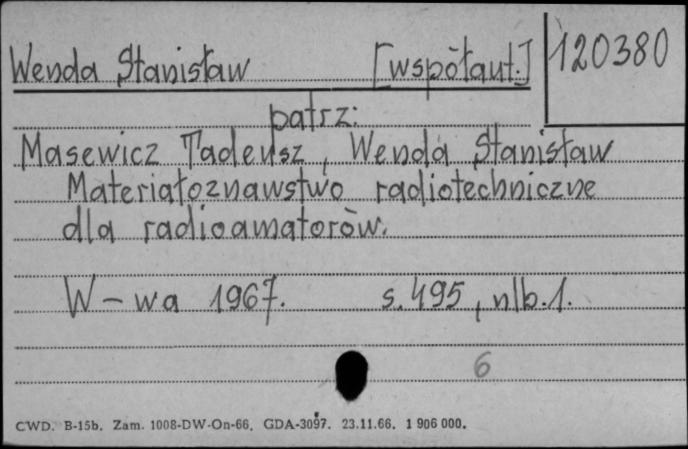 Wenda Stanisław [współaut.] 120380
patrz:
Masewicz Tadeusz, Wenda Stanisław
Materiałoznawstwo radiotechniczne
dla radioamatorów.
W-wa 1967. s. 495, nlb. 1.
6
CWD. B-15b. Zam. 1008-DW-On-66. GDA-3097. 23.11.66. 1 906 000.